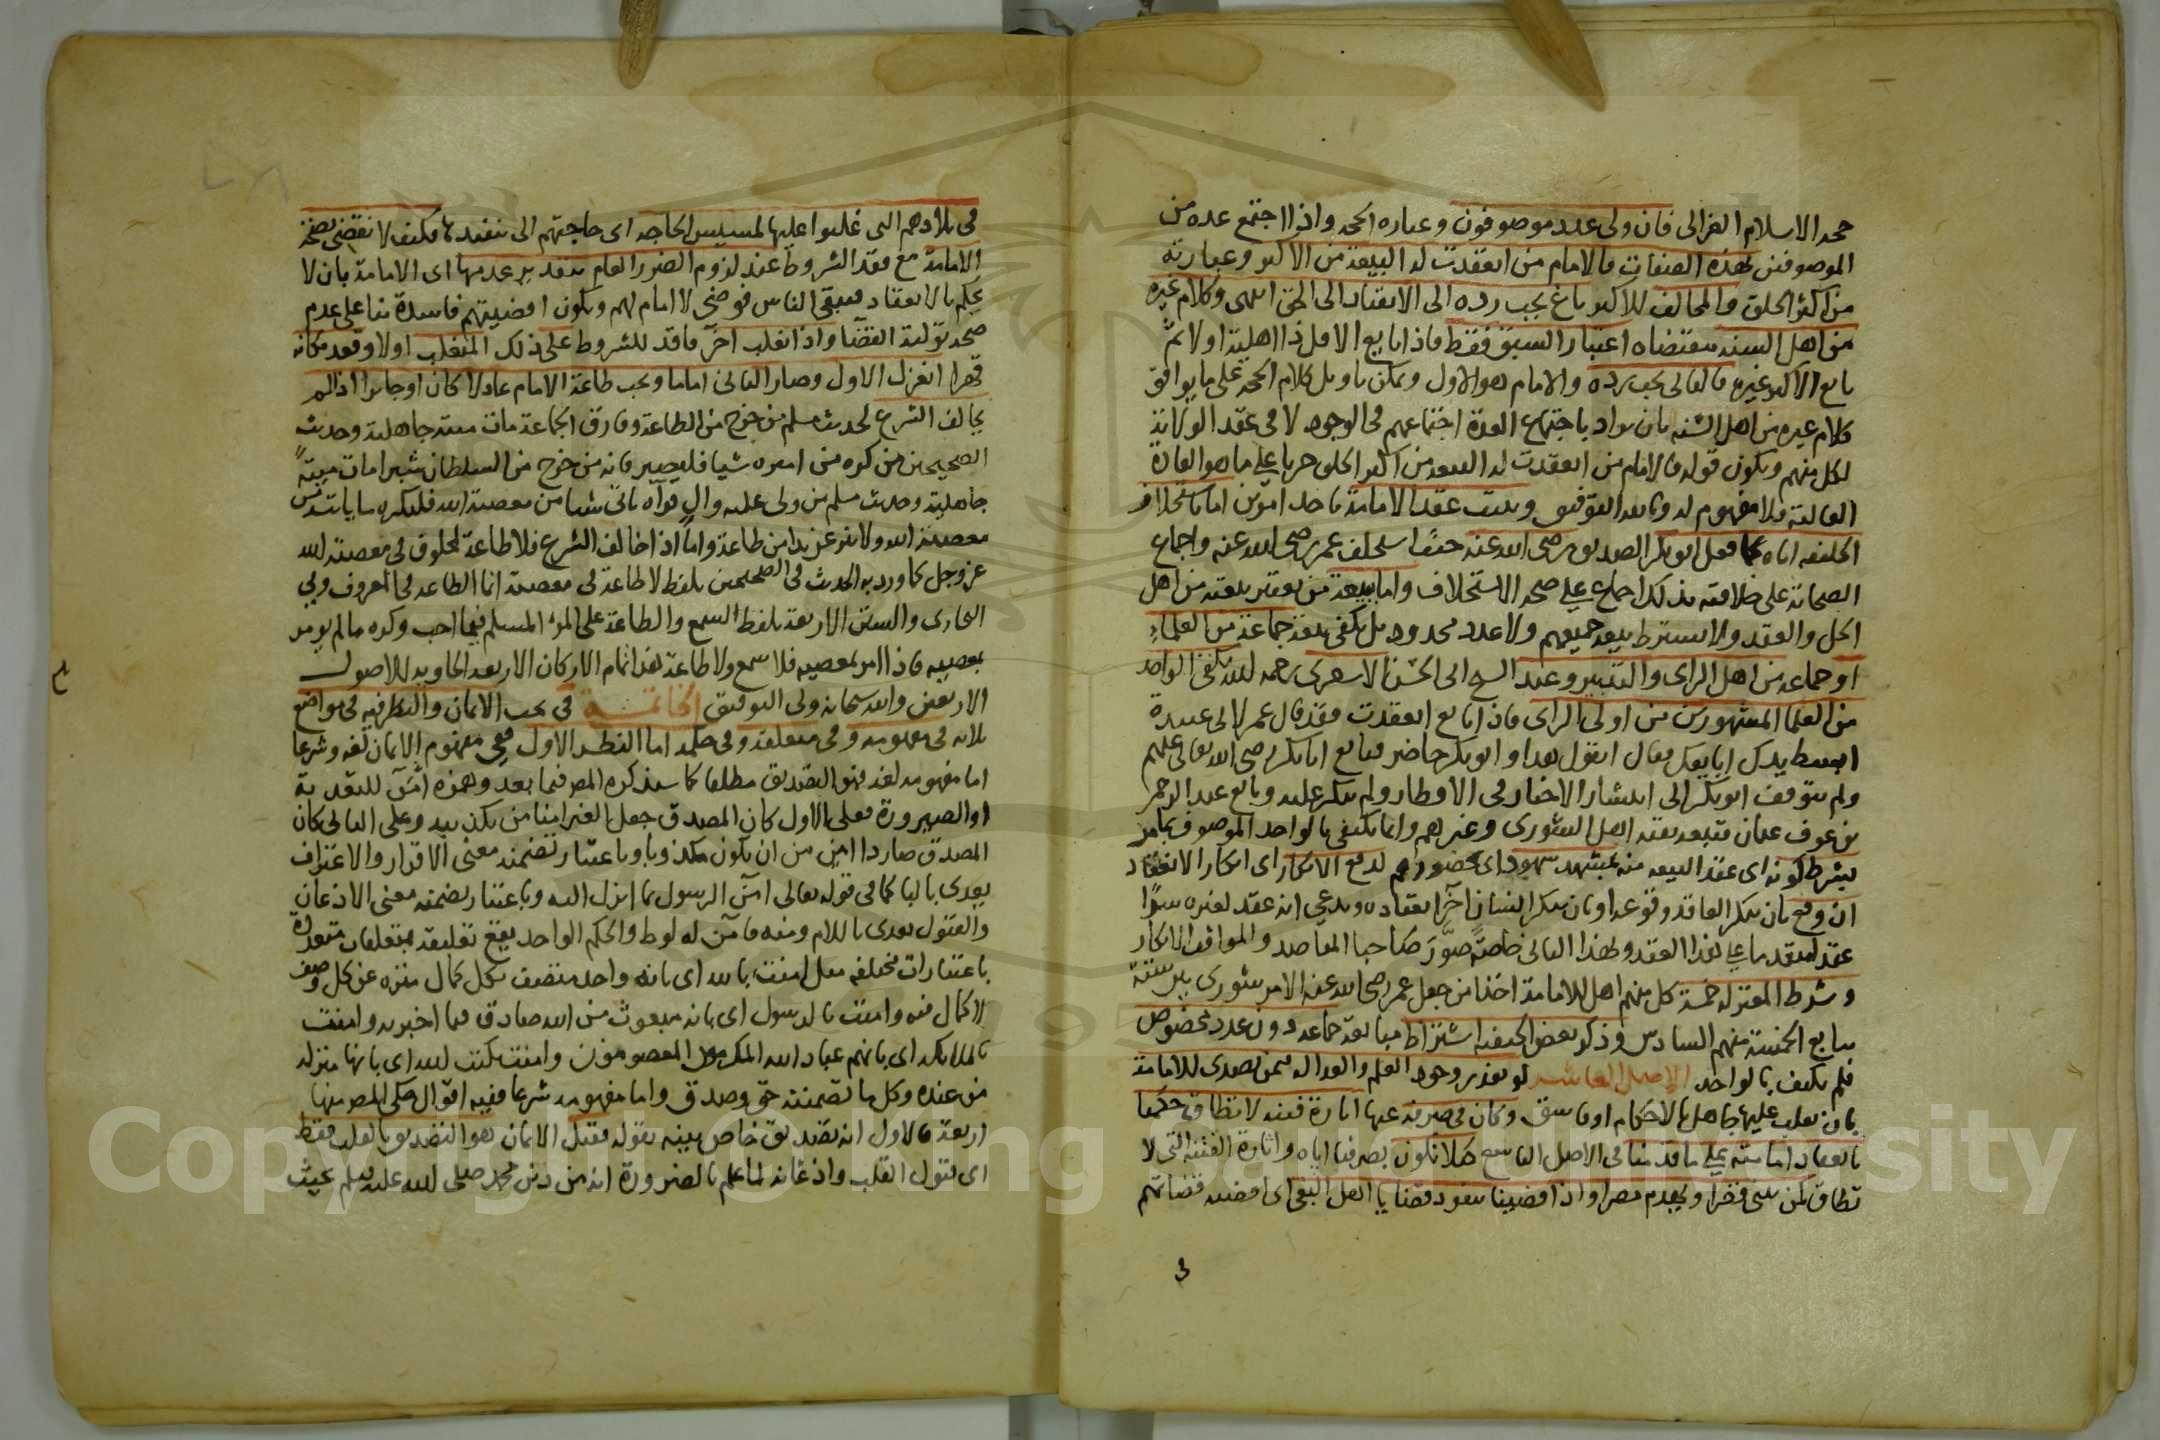 حجة الاسلام الغزالي فان ولي عدد موصوفون وعبارة الحجة واذا اجتمع عدة من
الموصوفين بهذه الصفات فالامام من انعقدت له البيعة من الاكثر وعبارته
من اكثر الخلق والمخالف للاكثر باغ يجب رده الى الانقياد الى الحق انتهى وكلام غيره
من اهل السنة مقتضاه اعتبار السبق فقط فاذا بايع الاقل ذا اهلية اولا ثم
بايع الاكثر غيره فالثاني يجب رده والامام هو الاول ويمكن تاويل كلام الحجة على ما يوافق
كلام غيره من اهل السنة بان يراد باجتماع العدة اجتماعهم في الوجود لا في عقد الولاية
لكل منهم ويكون قوله فالامام من انعقدت له البيعة من اكثر الخلق جريا على ما هو العادة
الغالبة فلا مفهوم له وبالله التوفيق ويثبت عقد الامامة باحد امرين اما باستخلاف
الخليفة اياه كما فعل ابو بكر الصديق رضي الله عنه حيث استخلف عمر رضي الله عنه واجماع
الصحابة على خلافته بذلك اجماع على صحة الاستخلاف واما ببيعة من يعتبر بيعته من اهل
الحل والعقد ولا يشترط بيعة جميعهم ولا عدد محدود بل يكفي بيعة جماعة من العلماء
او جماعة من اهل الراى والتدبير وعند الشيخ ابى الحسن الاشعرى رحمه الله يكفي الواحد
من العلما المشهورين من اولى الراى فاذا بايع انعقدت فقد قال عمر لابى عبيدة
ابسط يدك ابايعك فقال اتقول هذا وابو بكر حاضر فبايع ابا بكر رضي الله تعالى عنهم
ولم يتوقف ابو بكر الى انتشار الاخبار في الاقطار ولم ينكر عليه وبايع عبد الرحمن
بن عوف عثمان فتبعه بقية اهل الشورى وغيرهم وانما يكتفى بالواحد الموصوف بما مر
بشرط كونه اى عقد البيعة منه بمشهد شهود اى بحضورهم لدفع الانكار اى انكار الانعقاد
ان وقع بان ينكر العاقد وقوعه او بان ينكر انسان آخر انعقاده ويدعي انه عقد لغيره سرا
عقدا متقدما على هذا العقد ولهذا الثانى خاصة صور صاحبا المقاصد والمواقف الانكار
وشرط المعتزلة خمسة كل منهم اهل للامامة اخذا من جعل عمر رضي الله عنه الامر شورى بين ستة
يبايع الخمسة منهم السادس وذكر بعض الحنفية اشتراط مبايعة جماعة دون عدد مخصوص
فلم يكتف بالواحد الاصل العاشر لو تعذر وجود العلم والعدالة فيمن تصدى للامامة
بان تغلب عليها جاهل بالاحكام او فاسق وكان في صرفه عنها اثارة فتنة لا تطاق حكمنا
بانعقاد امامته على ما قدمنا في الاصل التاسع كيلا نكون بصرفنا اياه واثارة الفتنة التي لا
تطاق كمن يبني قصرا ويهدم مصرا واذا قضينا بنفوذ قضايا اهل البغى اى اقضية قضاتهم
في
في بلادهم التى غلبوا عليها لمسيس الحاجة اى حاجتهم الى تنفيذها فكيف لا نقضي بصحة
الامامة مع فقد الشروط عند لزوم الضرر العام بتقدير عدمها اى الامامة بان لا
يحكم بالانعقاد فيبقى الناس فوضى لا امام لهم وتكون اقضيتهم فاسدة بنا على عدم
صحة تولية القضا واذا تغلب آخر فاقد للشروط على ذلك المتغلب اولا وقعد مكانه
قهرا انعزل الاول وصار الثانى اماما ويجب طاعة الامام عادلا كان او جائرا اذا لم
يخالف الشرع لحديث مسلم من خرج من الطاعة وفارق الجماعة مات ميتة جاهلية وحديث
الصحيحين من كره من اميره شيا فليصبر فانه من خرج من السلطان شبرا مات ميتة
جاهلية وحديث مسلم من ولي عليه وال فرآه ياتى شيا من معصية الله فليكره ما ياتيه من
معصية الله ولا ينزعن يدا من طاعة واما اذا خالف الشرع فلا طاعة لمخلوق في معصية الله
عز وجل كما ورد به الحديث في الصحيحين بلفظ لا طاعة في معصية انما الطاعة في المعروف وفي
البخارى والسنن الاربعة بلفظ السمع والطاعة على المرء المسلم فيما احب وكره ما لم يومر
بمعصية فاذا امر بمعصية فلا سمع ولا طاعة هذا تمام الاركان الاربعة الحاوية للاصول
الاربعين والله سبحانه ولى التوفيق الخاتمة في بحث الايمان والنظر فيه في مواضع
ثلاثة في مفهومه وفي متعلقه وفي حكمه اما النظر الاول ففي مفهوم الايمان لغة وشرعا
اما مفهومه لغة فهو التصديق مطلقا كما سيذكره المص فيما بعد وهمزه آمن للتعدية
او الصيرورة فعلى الاول كان المصدق جعل الغير امنا من تكذيبه وعلى الثانى كان
المصدق صار ذا امن من ان يكون مكذوبا وباعتبار تضمنه معنى الاقرار والاعتراف
يعدى بالبا كما في قوله تعالى آمن الرسول بما انزل اليه وباعتبار تضمنه معنى الاذعان
والقبول يعدى باللام ومنه فآمن له لوط والحكم الواحد يقع تعليقه بمتعلقات متعددة
باعتبارات مختلفة مثل امنت بالله اى بانه واحد متصف بكل كمال منزه عن كل وصف
لا كمال فيه وامنت بالرسول اى بانه مبعوث من الله صادق فيما اخبر به وامنت
بالملائكة اى بانهم عباد الله المكرمون المعصومون وامنت بكتب الله اى بانها منزلة
من عنده وكل ما تضمنته حق وصدق واما مفهومه شرعا ففيه اقوال حكى المص منها
اربعة فالاول انه تصديق خاص بينه بقوله فقيل الايمان هو التصديق بالقلب فقط
اى قبول القلب واذعانه لما علم بالضرورة انه من دين محمد صلى الله عليه وسلم بحيث
Copyright © King Saud University